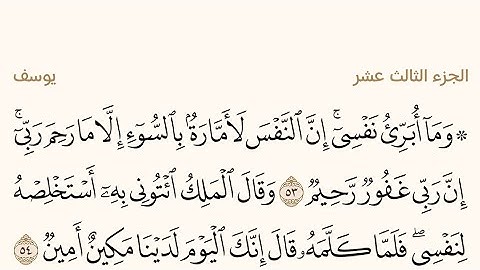 الجزء الثالث عشر يوسف
۞ وَمَآ أُبَرِّئُ نَفۡسِيٓۚ إِنَّ ٱلنَّفۡسَ لَأَمَّارَةُۢ بِٱلسُّوٓءِ إِلَّا مَا رَحِمَ رَبِّيٓۚ
إِنَّ رَبِّي غَفُورٞ رَّحِيمٞ ٥٣ وَقَالَ ٱلۡمَلِكُ ٱئۡتُونِي بِهِۦٓ أَسۡتَخۡلِصۡهُ
لِنَفۡسِيۖ فَلَمَّا كَلَّمَهُۥ قَالَ إِنَّكَ ٱلۡيَوۡمَ لَدَيۡنَا مَكِينٌ أَمِينٞ ٥٤